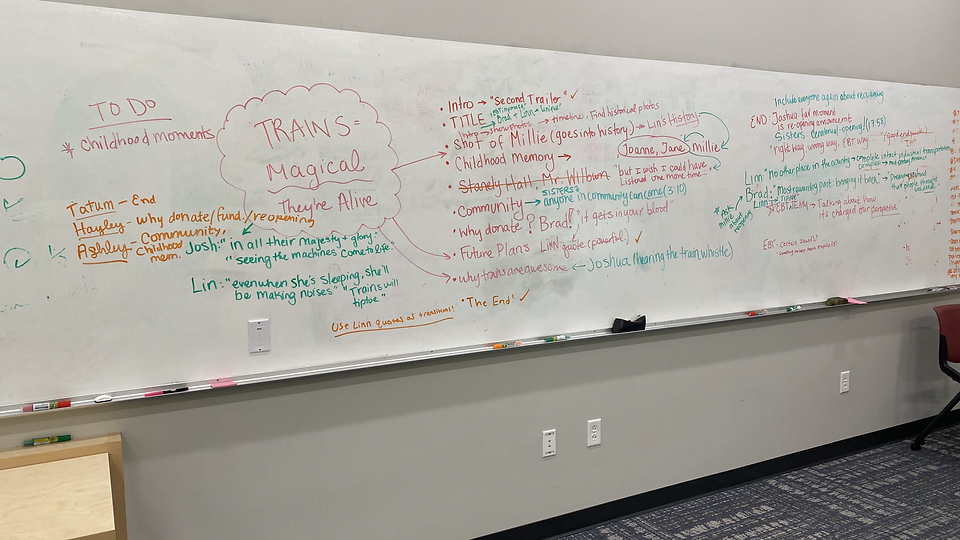 TO DO
* childhood moments
Tatum - End
Hayley - why donate/fund/reopening
Ashley - Community,
childhood
mem.
Josh: "in all their majesty + glory"
"seeing the machines come to life"
Lin: "even when she's sleeping, she'll
be making noises" "Trains will
tiptoe"
TRAINS =
Magical
They're Alive
Use Linn quotes as transitions!
• Intro → "Second Trailer" ✓
• TITLE → Brad + Linn → unique"
Intro → show photos → timeline, Find historical photos
• Shot of Millie (goes into history) → Lin's History
• Childhood Memory → Joanne, Jane, Millie
"but I wish I could have
listened one more time"
• Stanely Hall, Mr. Wilburn
SISTERS:
• Community → anyone in community can come (3:10)
• why donate? Brad! "it gets in your blood"
• Future Plans Linn quote (powerful) ✓
• why trains are awesome ← Joshua (hearing the train whistle)
• "The End" ✓
Include everyone again about reopening
END: Joshua: fav moment
is re-opening announcement
Sisters: Centennial-opening! (17:58)
"right way, wrong way, EBT way" (good end quote)
Linn: "no other place in the country → complete intact industrial transportation
Brad: "Most rewarding part: bringing it back" →
Linn: "Tiptoe"
* EBT TEAM → Talking about how
it's changed our perspective
* Ask
Millie
about
reopening
EBT - certain sounds?